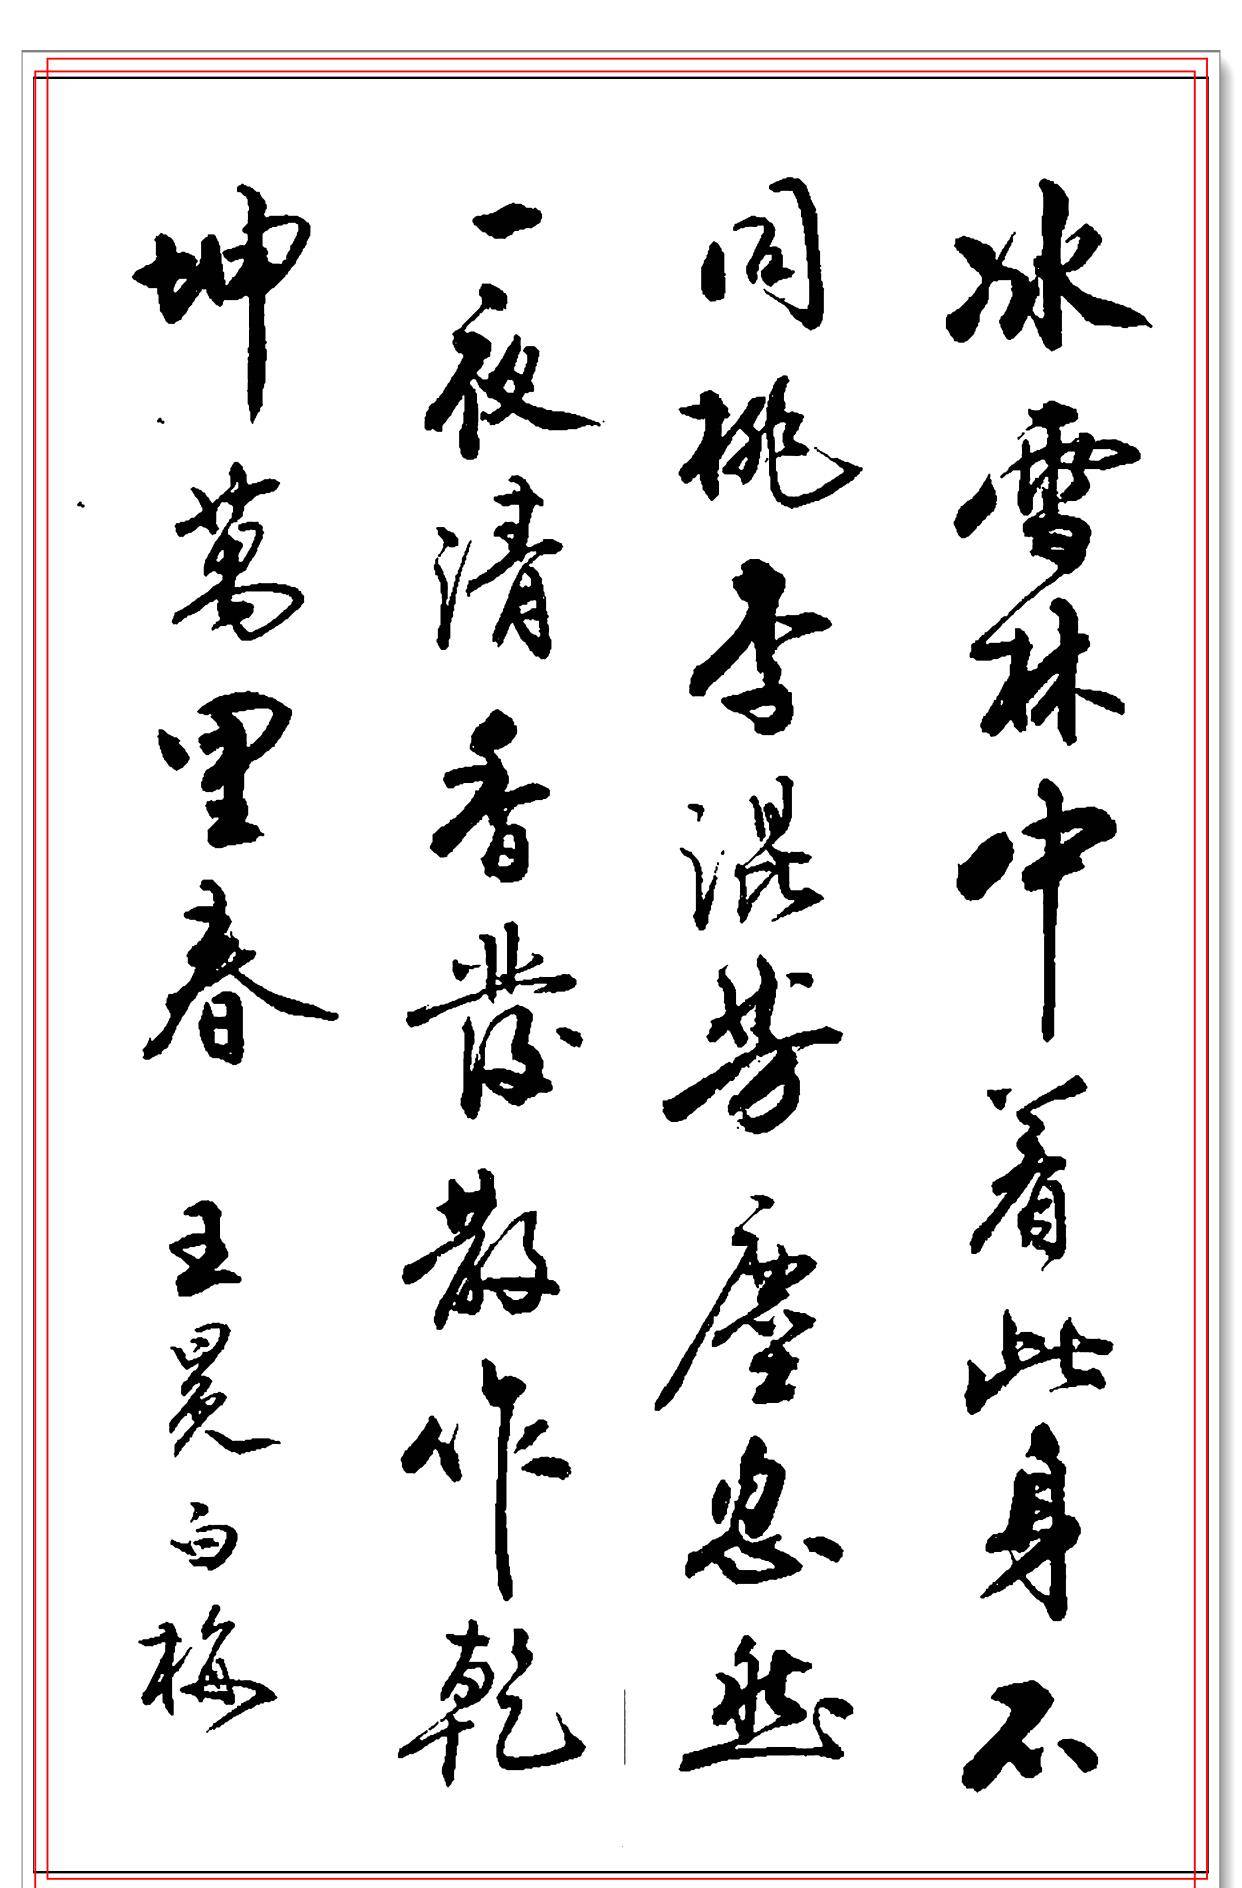 冰雪林中着此身不
同桃李混芳塵忽然
一夜清香發散作乾
坤萬里春 王冕白梅